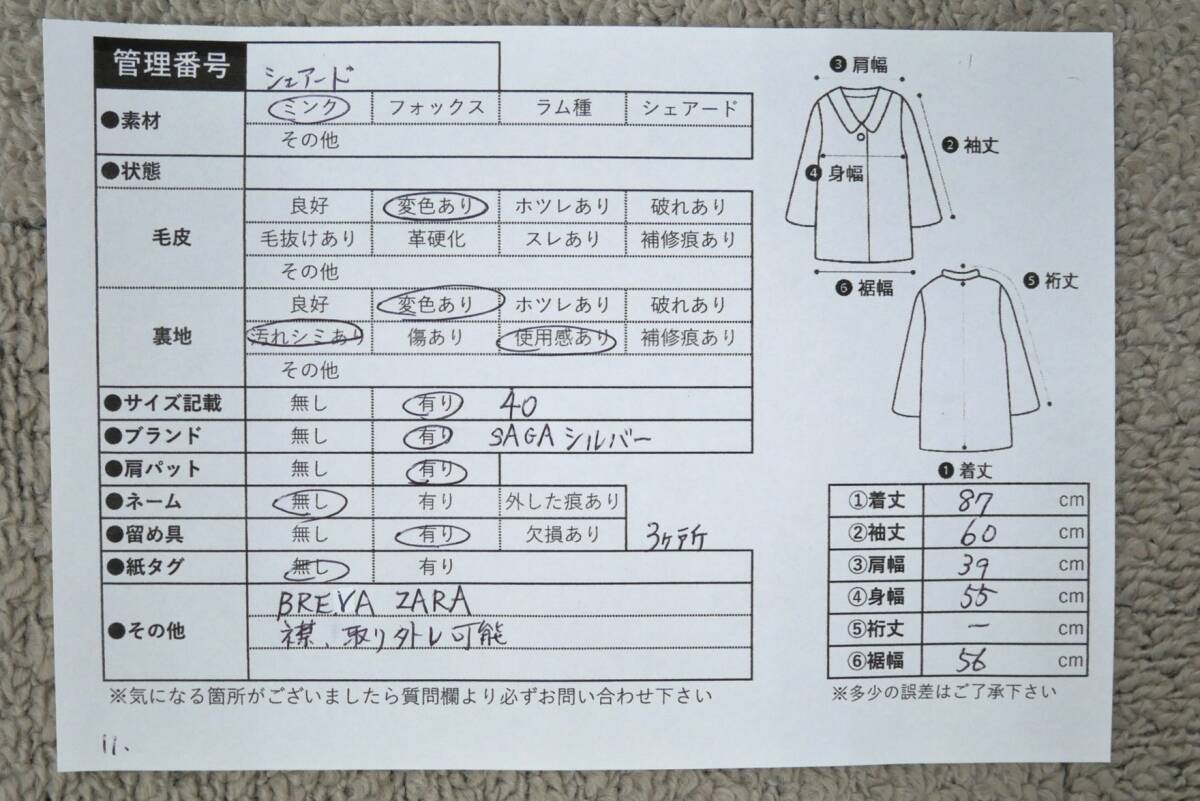 管理番号 シェアード
●素材 ミンク フォックス ラム種 シェアード
その他
●状態
毛皮 良好 変色あり ホツレあり 破れあり
毛抜けあり 革硬化 スレあり 補修痕あり
その他
裏地 良好 変色あり ホツレあり 破れあり
汚れシミあり 傷あり 使用感あり 補修痕あり
その他
●サイズ記載 無し 有り 40
●ブランド 無し 有り SAGAシルバー
●肩パット 無し 有り
●ネーム 無し 有り 外した痕あり
●留め具 無し 有り 欠損あり 3ヶ所
●紙タグ 無し 有り
●その他 BREVA ZARA
襟、取り外し可能
※気になる箇所がございましたら質問欄より必ずお問い合わせ下さい
11.
❸肩幅
❷袖丈
❹身幅
❻裾幅
❺裄丈
❶着丈
①着丈 87 cm
②袖丈 60 cm
③肩幅 39 cm
④身幅 55 cm
⑤裄丈 ー cm
⑥裾幅 56 cm
※多少の誤差はご了承下さい